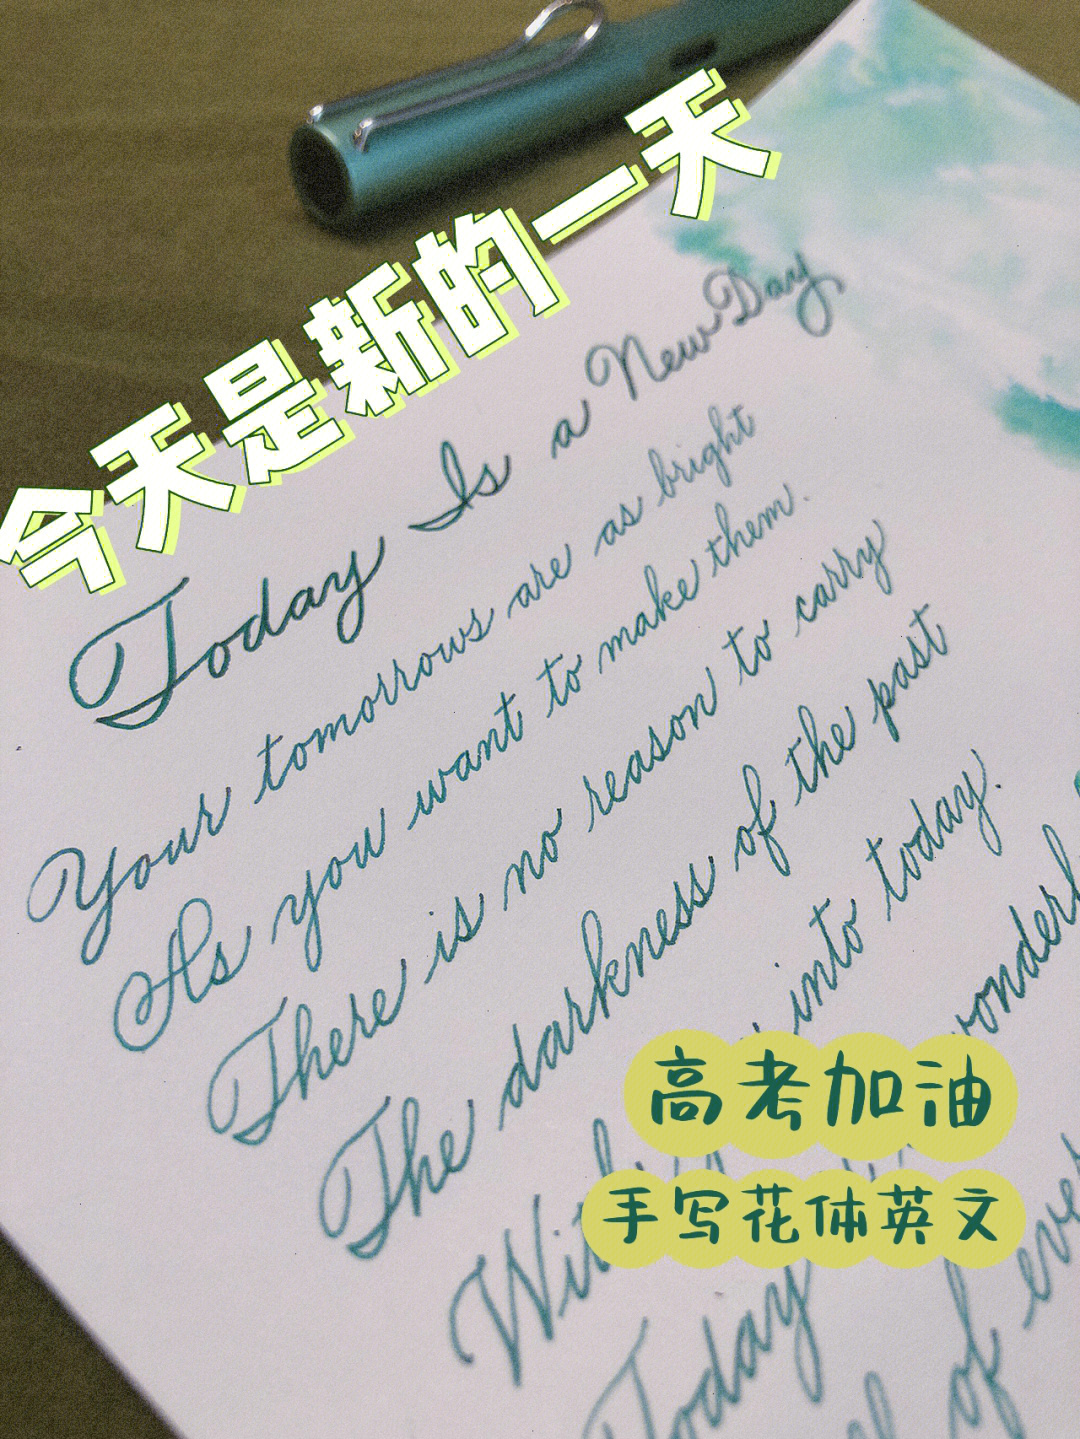 今天是新的一天
Today Is a New Day
Your tomorrows are as bright
As you want to make them.
There is no reason to carry
The darkness of the past
into today.
高考加油
手写花体英文
Today
of